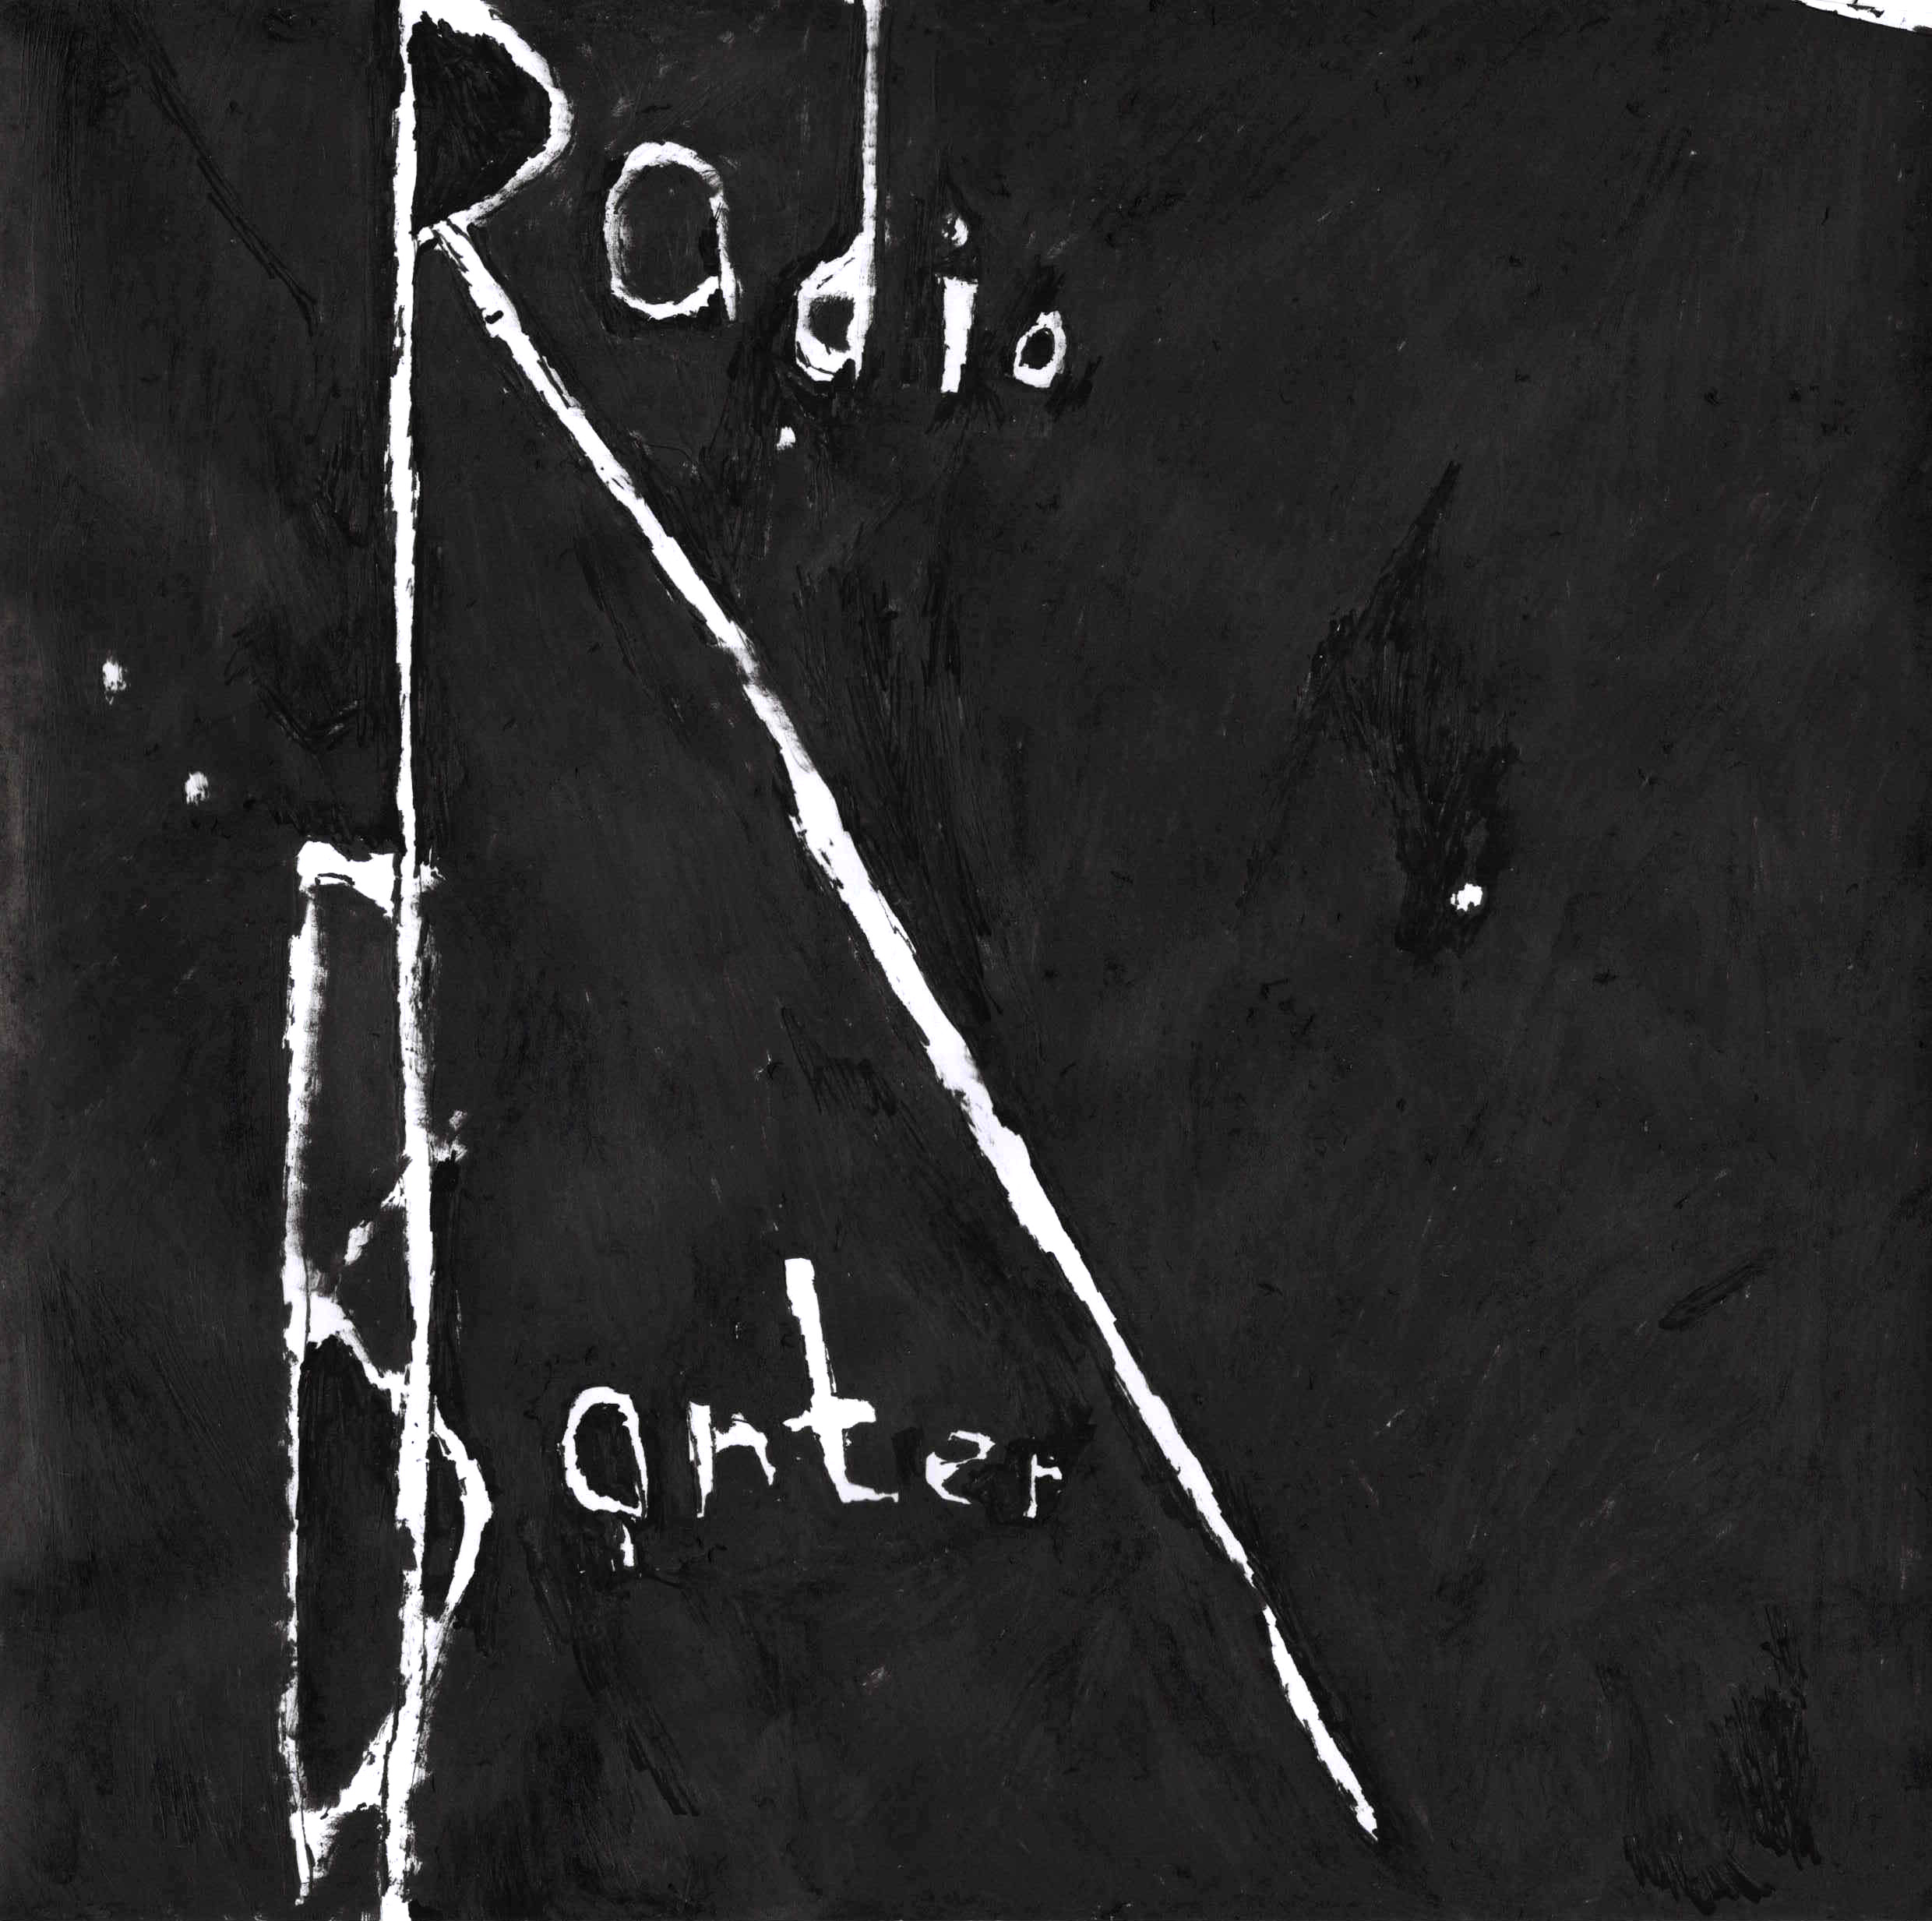 Radio
Banter